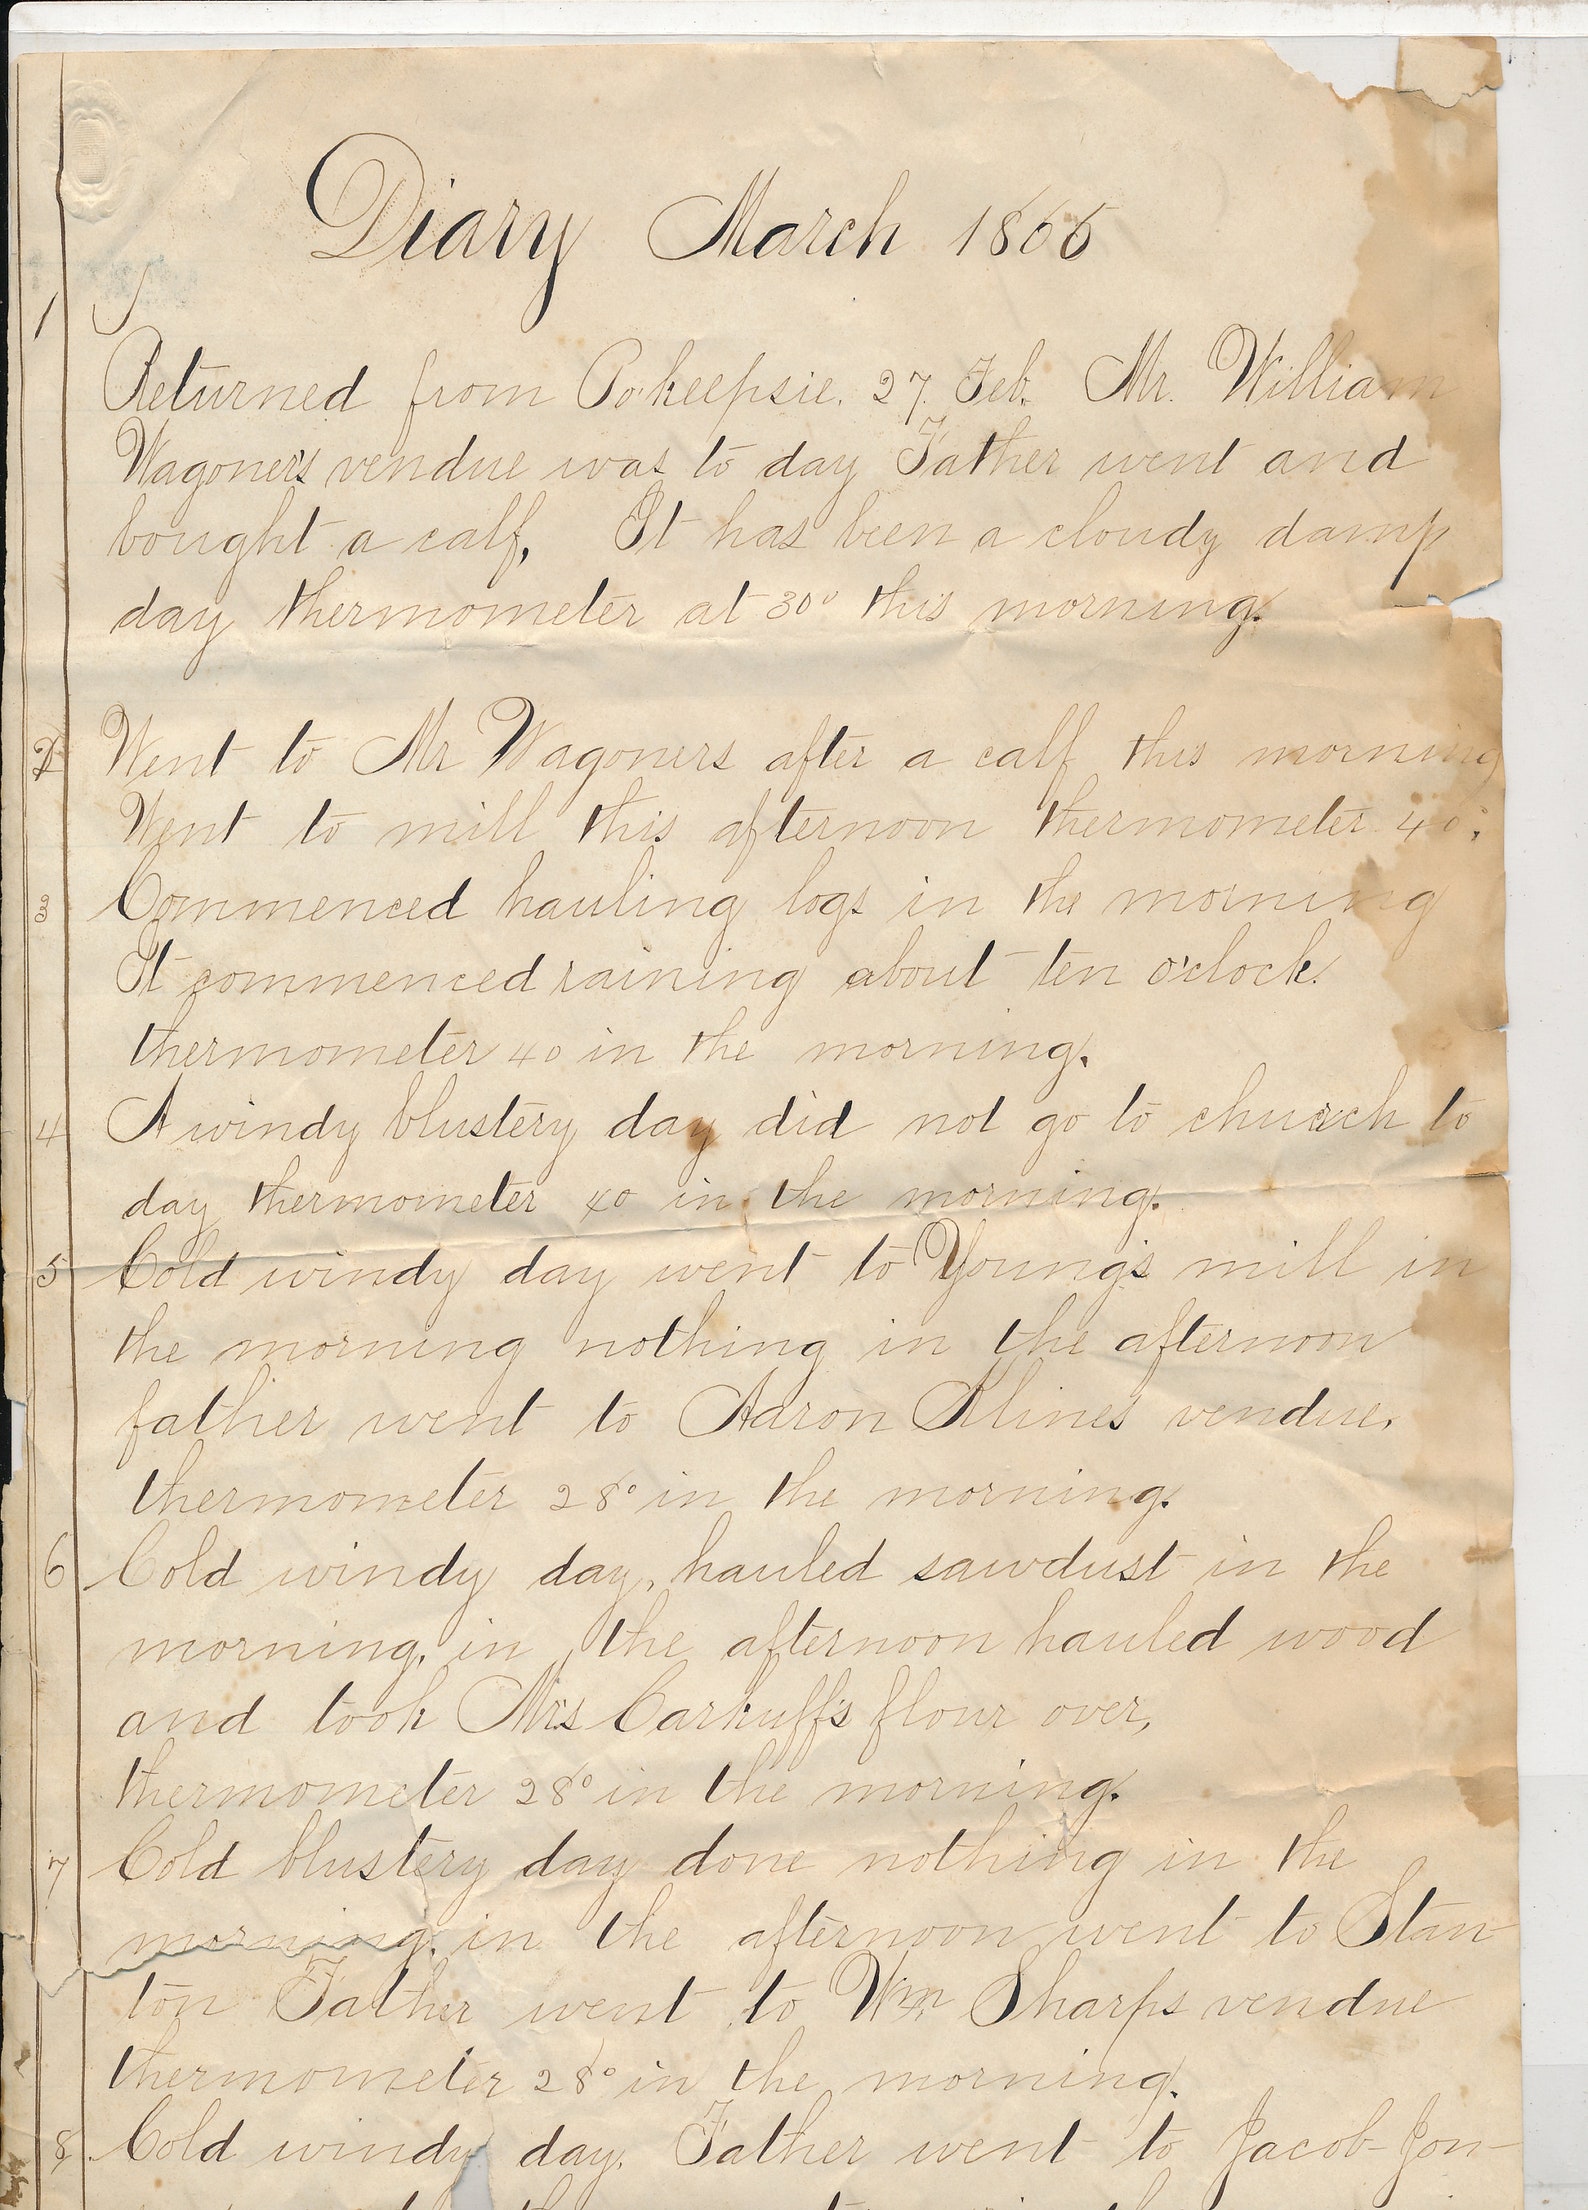 Diary March 1866
1
Returned from Po'keepsie. 27. Feb. Mr. William
Wagoner's vendue was to day Father went and
bought a calf, It has been a cloudy damp
day thermometer at 30° this morning.
2 Went to Mr Wagoners after a calf this morning
Went to mill this afternoon thermometer 40°.
3 Commenced hauling logs in the morning
It commenced raining about ten o'clock.
thermometer 40 in the morning.
4 A windy blustery day did not go to church to
day thermometer 40 in the morning.
5 Cold windy day went to Young's mill in
the morning nothing in the afternoon
father went to Aaron Klines vendue.
thermometer 28° in the morning.
6 Cold windy day, hauled sawdust in the
morning, in the afternoon hauled wood
and took Mrs Carkuff's flour over,
thermometer 28° in the morning.
7 Cold blustery day done nothing in the
morning. in the afternoon went to Stan-
ton Father went to Wm Sharps vendue
thermometer 28° in the morning.
8 Cold windy day. Father went to Jacob Jon-